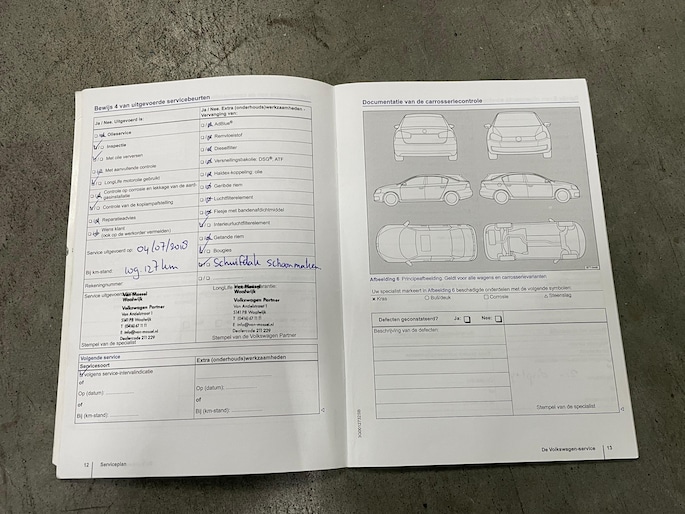 Bewijs 4 van uitgevoerde servicebeurten
Ja / Nee: Uitgevoerd is:
Olieservice
Inspectie
Met olie verversen
Met aanvullende controle
LongLife motorolie gebruikt
Controle op corrosie en lekkage van de aard-
gasinstallatie
Controle van de koplampafstelling
Reparatieadvies
Wens klant
(ook op de werkorder vermelden)
Service uitgevoerd op: 04/07/2018
Bij km-stand: 109.127 km
Rekeningnummer:
Service uitgevoerd
Van Mossel
Waalwijk
Volkswagen Partner
Van Andelstraat 1
5141 PB Waalwijk
T (0416) 67 11 11
E info@van-mossel.nl
Dealercode 211 229
Stempel van de specialist
Ja / Nee: Extra (onderhouds)werkzaamheden -
Vervanging van:
AdBlue®
Remvloeistof
Dieselfilter
Versnellingsbakolie: DSG®, ATF
Haldex-koppeling: olie
Geribde riem
Luchtfilterelement
Flesje met bandenafdichtmiddel
Interieurluchtfilterelement
Getande riem
Bougies
Schuifdak schoonmaken
LongLife
Van Mossel
Waalwijk
Volkswagen Partner
Van Andelstraat 1
5141 PB Waalwijk
T (0416) 67 11 11
E info@van-mossel.nl
Dealercode 211 229
Stempel van de Volkswagen Partner
Volgende service
Servicesoort
volgens service-intervalindicatie
of
Op (datum):
of
Bij (km-stand):
Extra (onderhouds)werkzaamheden
Op (datum):
of
Bij (km-stand):
12 Serviceplan
Documentatie van de carrosseriecontrole
Afbeelding 6 Principeafbeelding. Geldt voor alle wagens en carrosserievarianten
Uw specialist markeert in Afbeelding 6 beschadigde onderdelen met de volgende symbolen:
× Kras ○ Buil/deuk □ Corrosie △ Steenslag
Defecten geconstateerd? Ja: Nee:
Beschrijving van de defecten:
Stempel van de specialist
De Volkswagen-service 13